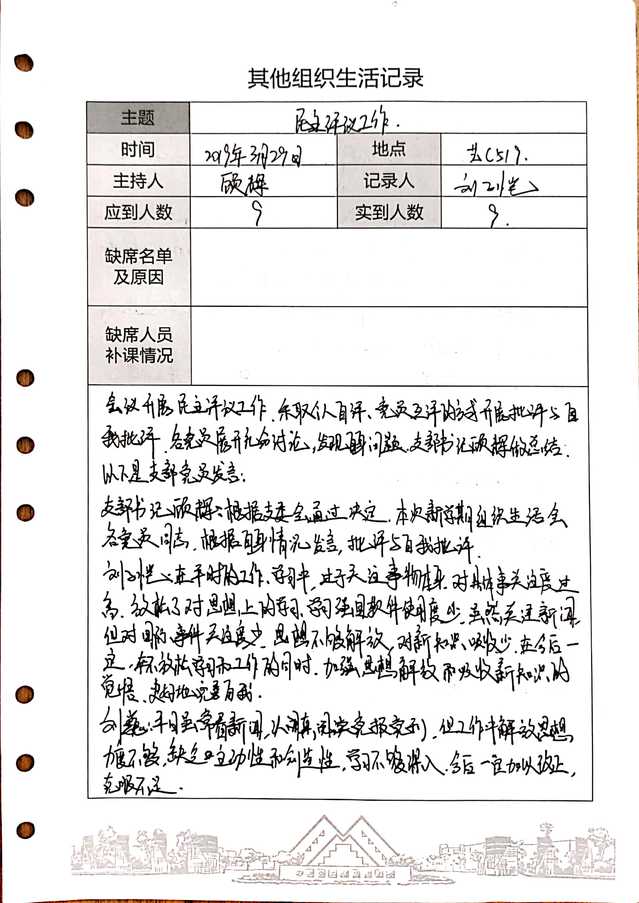 其他组织生活记录
主题 民主评议工作.
时间 2019年3月29日 地点 艺C517.
主持人 顾樑 记录人
应到人数 9 实到人数 9.
缺席名单
及原因
缺席人员
补课情况
会议开展民主评议工作,采取个人自评、党员互评的方式开展批评与自
我批评.各党员展开充分讨论,发现自身问题.支部书记顾樑做总结.
以下是支部党员发言:
支部书记顾樑:根据支委会通过决定.本次新学期组织生活会
各党员同志.根据自身情况发言,批评与自我批评.
在平时的工作、学习中,过于关注事物本身.对具体事关注度过
高.放松了对思想上的学习.学习强国软件使用度少.虽然关注新闻
但对国内事件关注度少.思想不够解放,对新知识吸收少.在今后一
定不放松学习和工作的同时.加强思想解放和吸收新知识的
觉悟.更好地完善自我.
刘薇:平日虽常看新闻,认真阅读党报党刊,但工作中解放思想
力度不够,缺乏主动性和创造性,学习不够深入.今后一定加以改正,
克服不足.